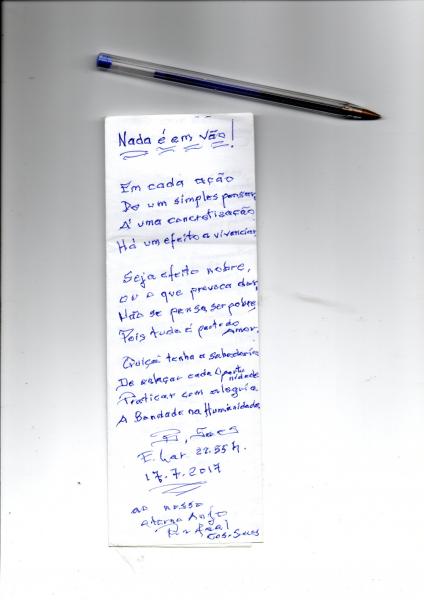 Nada é em vão!
Em cada ação
De um simples pensar,
A' uma concretisação
Há um efeito a vivenciar.
Seja efeito nobre,
ou o que provoca dor,
Não se pensa ser pobre,
Pois tudo é parte do Amor.
tenha a sabedoria
De cada Oportunidade
Praticar com alegria
A Bondade na Humanidade.
22.55 h.
17.7.2017
ao nosso
eterno Anjo